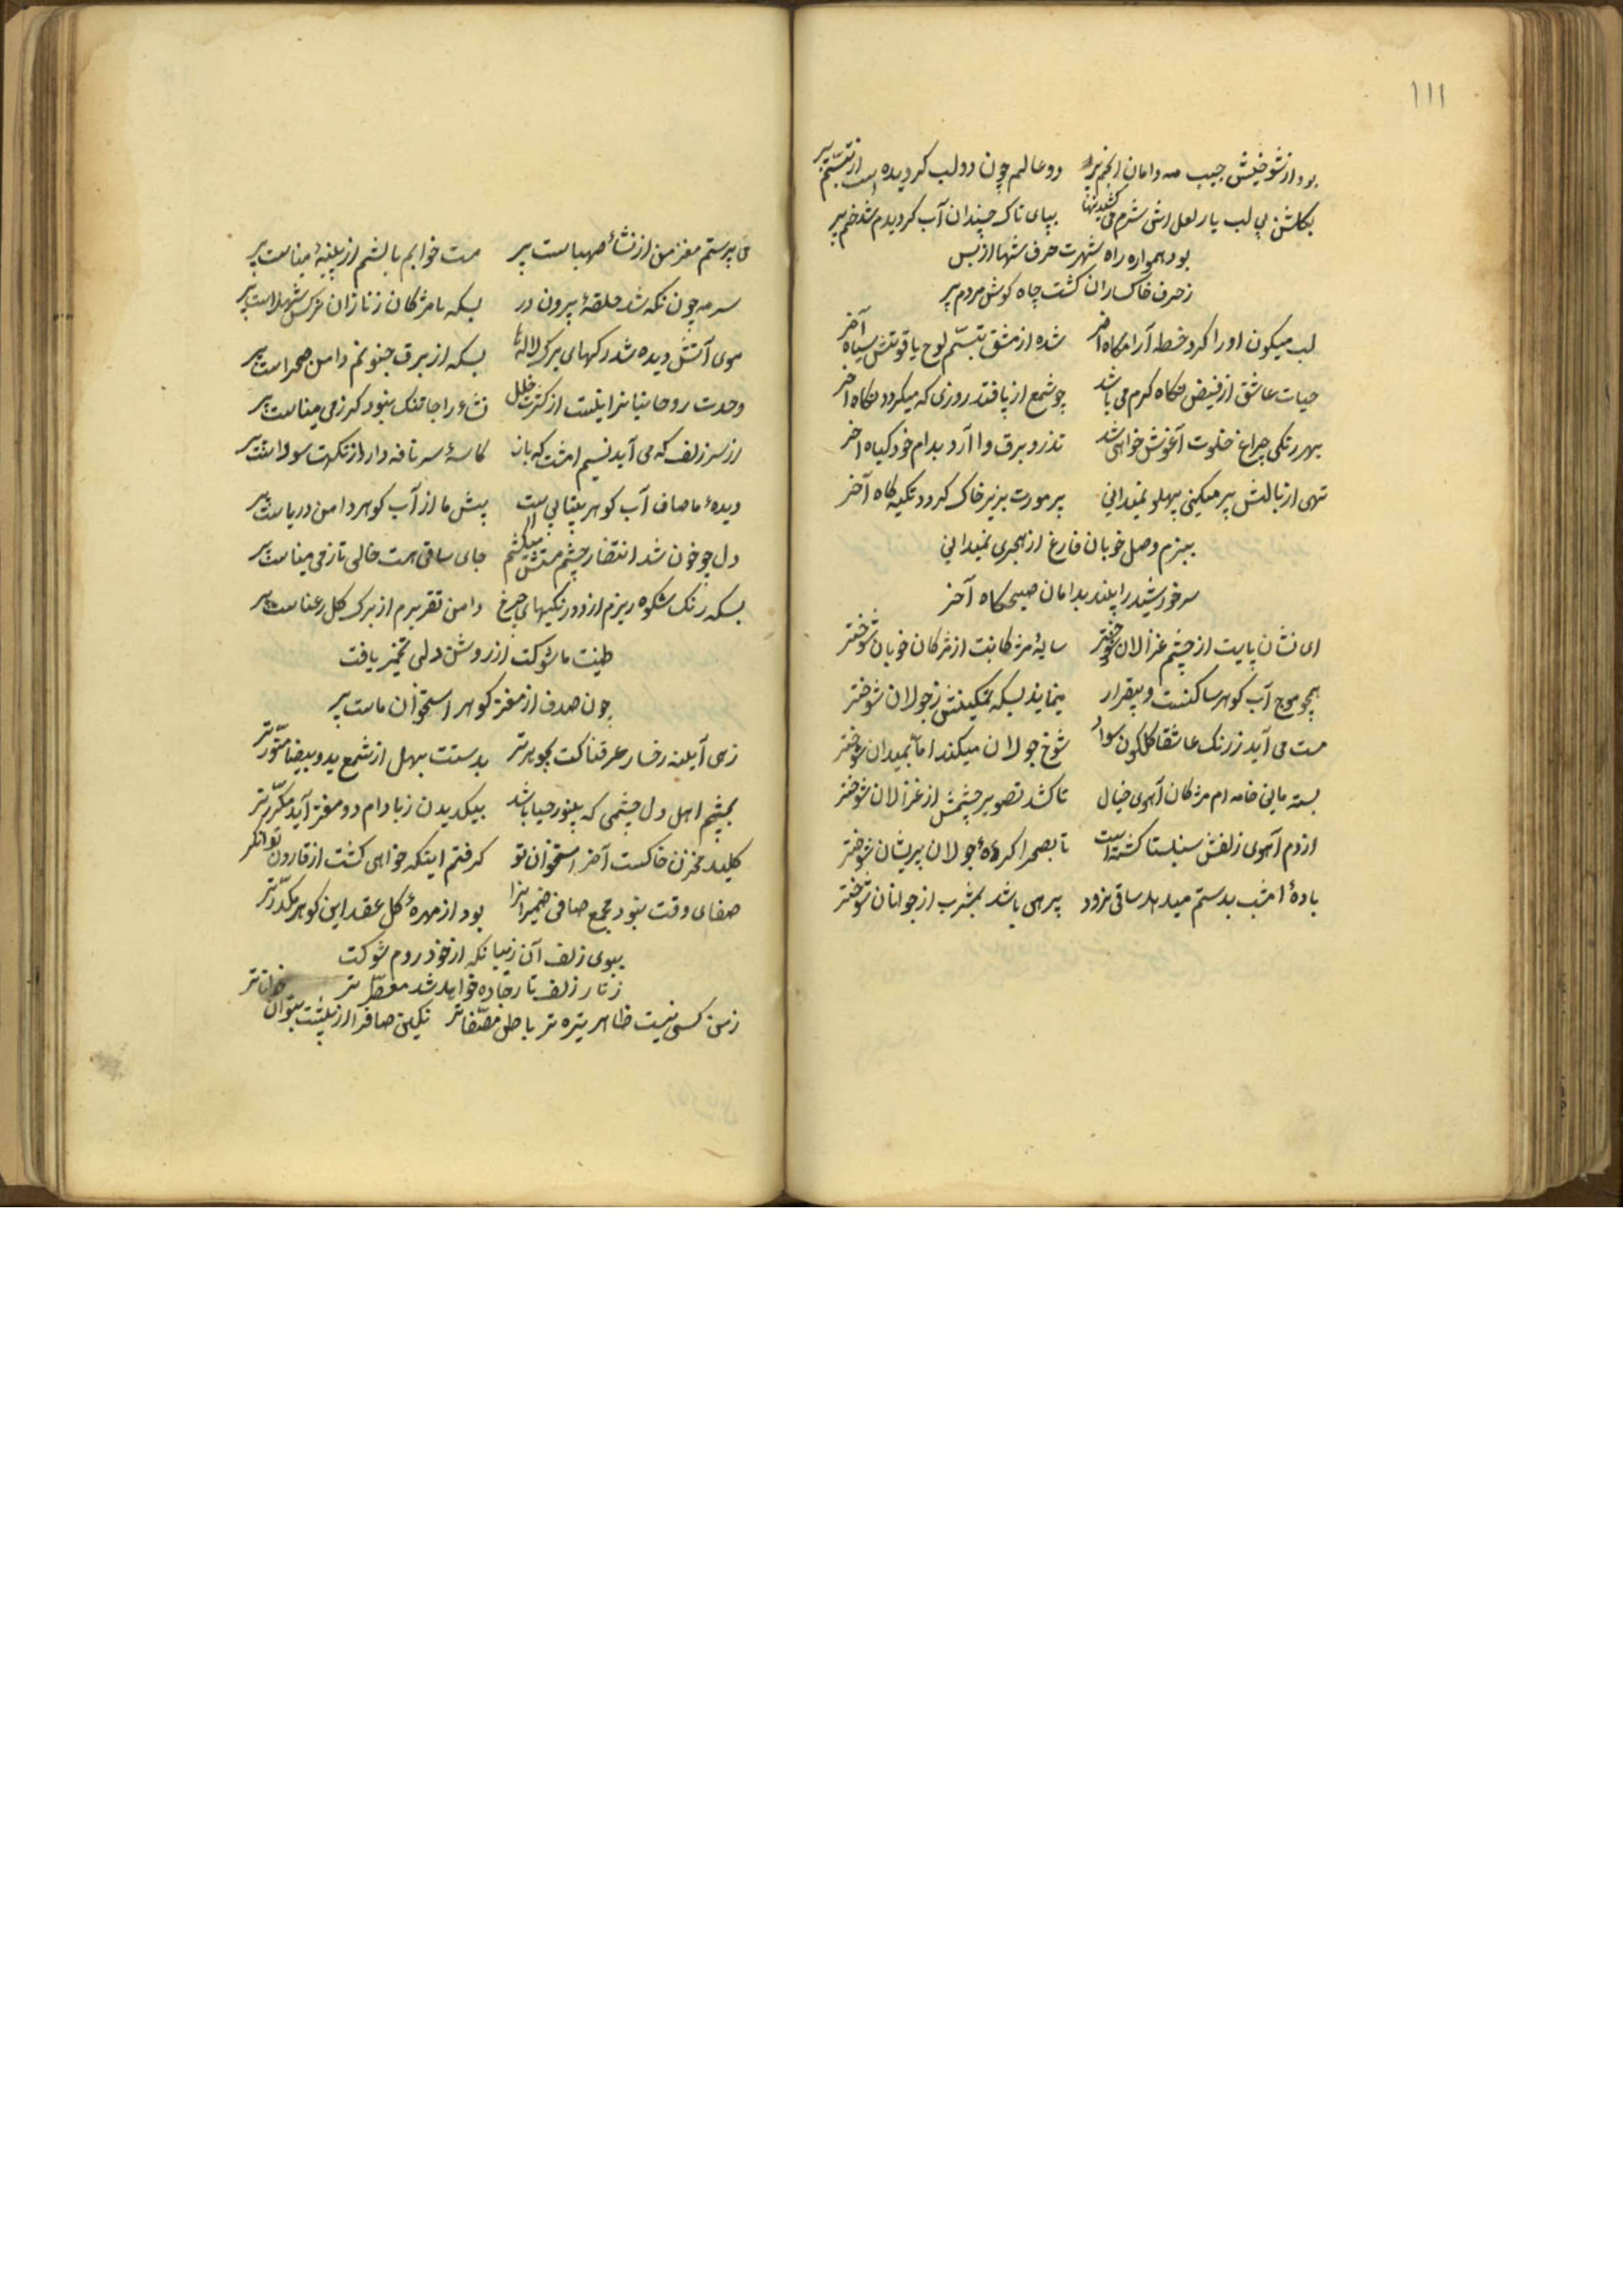 ١١١
بود از شوخیش جیب مه و دامان انجم پر دو عالم چون دو لب کردیده است از تبسّم پر
بکلشن بی لب یار لعل شرم می بپای تاک چندان آب کردیدم شد خم پر
بود همواره راه شهرت حرف شها از بس
ز حرف خاکساران کشت چاه کوش مردم پر
لب میکون او را کرد خط آرامکاه آخر شده از مشق تبسّم لوح یاقوتش سیاه آخر
حیات عاشق از فیض نکاه کرم می باشد چو شمع از پا فتد روزی که میکردد نکاه آخر
بهر رنکی چراغ خلوت آغوش خواهی شد تذرو برق وا آرد بدام خود کیاه آخر
تهی از بالش پر میکنی پهلو نمیدانی پر مورت بزیر خاک کردد تکیه کاه آخر
ببزم وصل خوبان فارغ از هجری نمیدانی
سر خورشید را بیند بدامان صبحکاه آخر
ای نشان پایت از چشم غزالان شوختر سایهٔ مژکانت از مژکان خوبان شوختر
همچو موج آب کوهر ساکنست و بیقرار مینماید بسکه تمکینش ز جولان شوختر
مست می آید ز رنک عاشقان کلکون سوار شوخ جولان میکند اما بمیدان شوختر
بسته مانی خامه ام مژکان آهوی خیال تا کشد تصویر چشمش از غزالان شوختر
از دم آهوی زلفش سنبلستان کشته است تا بصحرا کرده جولان پریشان شوختر
بادهٔ امشب بدستم میدهد ساقی بزور پیر می باشد بمشرب از جوانان شوختر
می پرستم مغز من از نشأ صهباست پر مست خوابم بالشم از پنبهٔ میناست پر
سرمه چون نکه شد حلقهٔ بیرون در بسکه با مژکان ز ناز آن نرکس شهلاست پر
موی آتش دیده شد رکهای برک لاله ها بسکه از برق جنونم دامن صحراست پر
وحدت روحانیانرا نیست از کثرت خلل نشأ را جا تنک نبود کر ز می میناست پر
از سر زلف که می آید نسیم امشب که باز کاسهٔ سر نافه وار از نکهت سوداست پر
دیدهٔ ما صاف آب کوهر بیتابی است پیش ما از آب کوهر دامن دریاست پر
دل چو خون شد انتظار چشم مستش میکشم جای ساقی هست خالی تا ز می میناست پر
بسکه رنک شکوه ریزم از دورنکیهای چرخ دامن تقریرم از برک کل رعناست پر
طینت ما شوکت از روشن دلی تخمیر یافت
چون صدف از مغز کوهر استخوان ماست پر
زهی آیینه رخسار عرقناکت بجوهر تر بدستت بهل از شمع ید و بیضا منوّرتر
بچشم اهل دل چشمی که بینور حیا باشد بیکدیدن ز بادام دو مغز آید مکرّرتر
کلید مخزن خاکست آخر استخوان تو کرفتم اینکه خواهی کشت از قارون توانکر
صفای وقت نبود مجمع صافی ضمیرانرا بود از مهرهٔ کل عقد این کوهر مکدّرتر
ببوی زلف آن زیبا نکه از خود روم شوکت
ز تار زلف تار جاده خواهد شد معطّر تر
ز من کسی نیست ظاهر تیره تر باطن مصفّاتر نکین صافرا از پشت بتوان خواناتر